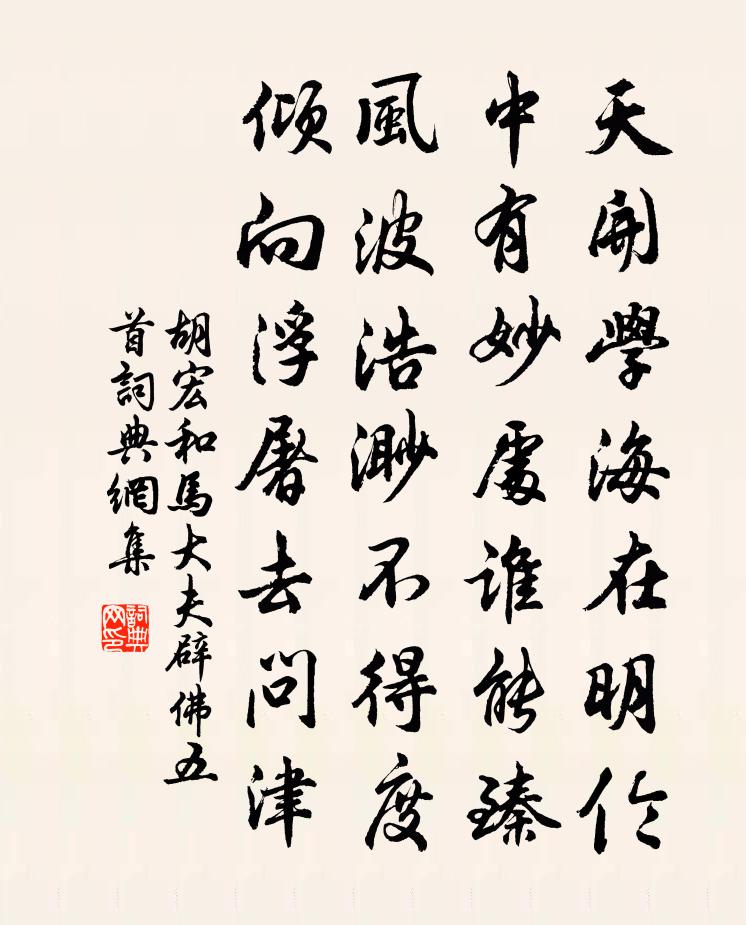 天開學海在明伦
中有妙處誰能臻
風波浩渺不得度
傾向浮屠去問津
胡宏和馬大夫辟佛五
首詞典網集
詞典网印